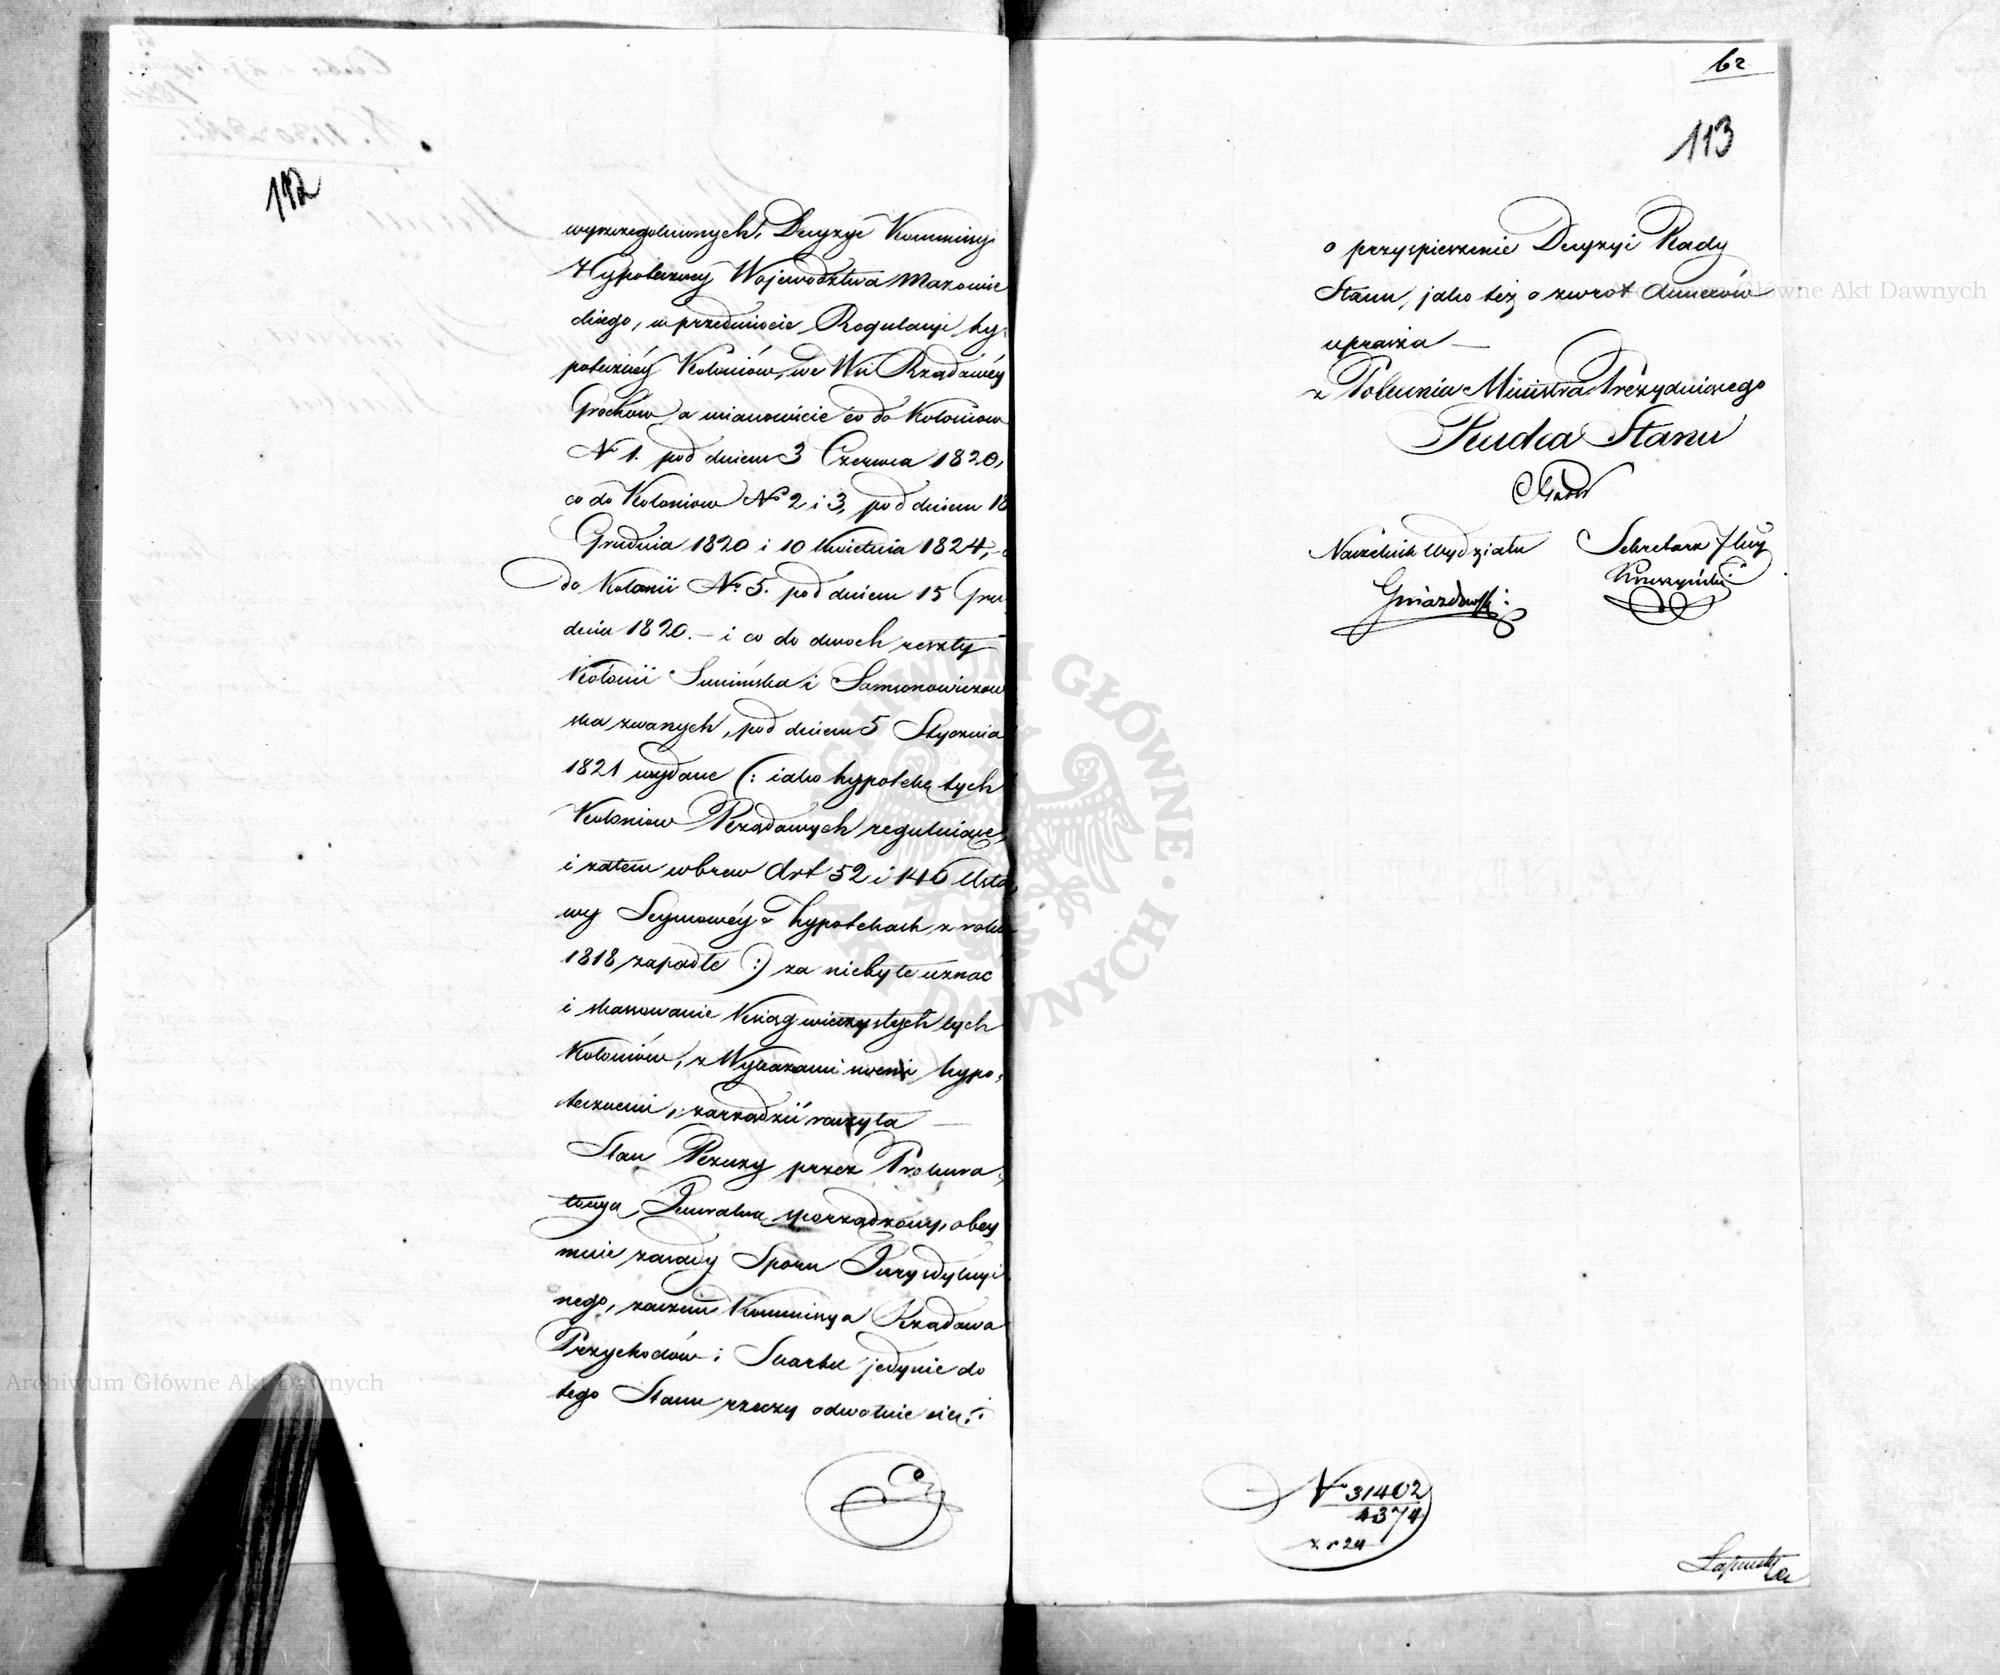 112
wyszczegulnionych, Decyzye Kommissyi
Hypoteczney Województwa Mazowie
ckiego, w przedmiocie Regulacyi hy-
poteczney Koloniów, we Wsi Rządowéy
Grochow a mianowicie co do Koloniow
No 1. pod dniem 3 Czerwca 1820,
co do Koloniow No 2 i 3, pod dniem 18
Grudnia 1820 i 10 Kwietnia 1824, - c
do Kolonii No 5. pod dniem 15 Gru
dnia 1820. - i co do dwoch reszty
Kolonii i Samsonowiczow
ska zwanych, pod dniem 5 Stycznia
1821 wydane (: iako hypotekę tych
Koloniow Rządowych reguluiące,
i zatem wbrew Art 52 i 146 Usta,
wy Seymowéy o hypotekach z roku
1818 zapadłe :) za niebyłe uznac
i skassowanie Ksiąg wieczystych tych
Koloniów, z Wykazami hypo,
tecznemi, zarządzić raczyła —
Stan Rzeczy przez Prokura,
toryą Jeneralną sporządzony, obey
muie zasady Sporu Jurysdykcyi
nego, zaczem Kommissya Rządowa
Przychodów i Skarbu jedynie do
tego Stanu rzeczy odwołuie się:
62
113
o przyspieszenie Decyzyi Rady
Stanu, jako też o zwrot dowodów
uprasza —
z Polecenia Ministra Prezyduiącego
Radca Stanu
Naczelnik Wydziału Sekretarz Jlny
Gniazdowski
No 31402
4374
z r 24
Archiwum Główne Akt Dawnych
Archiwum Główne Akt Dawnych
ARCHIWUM GŁÓWNE AKT DAWNYCH